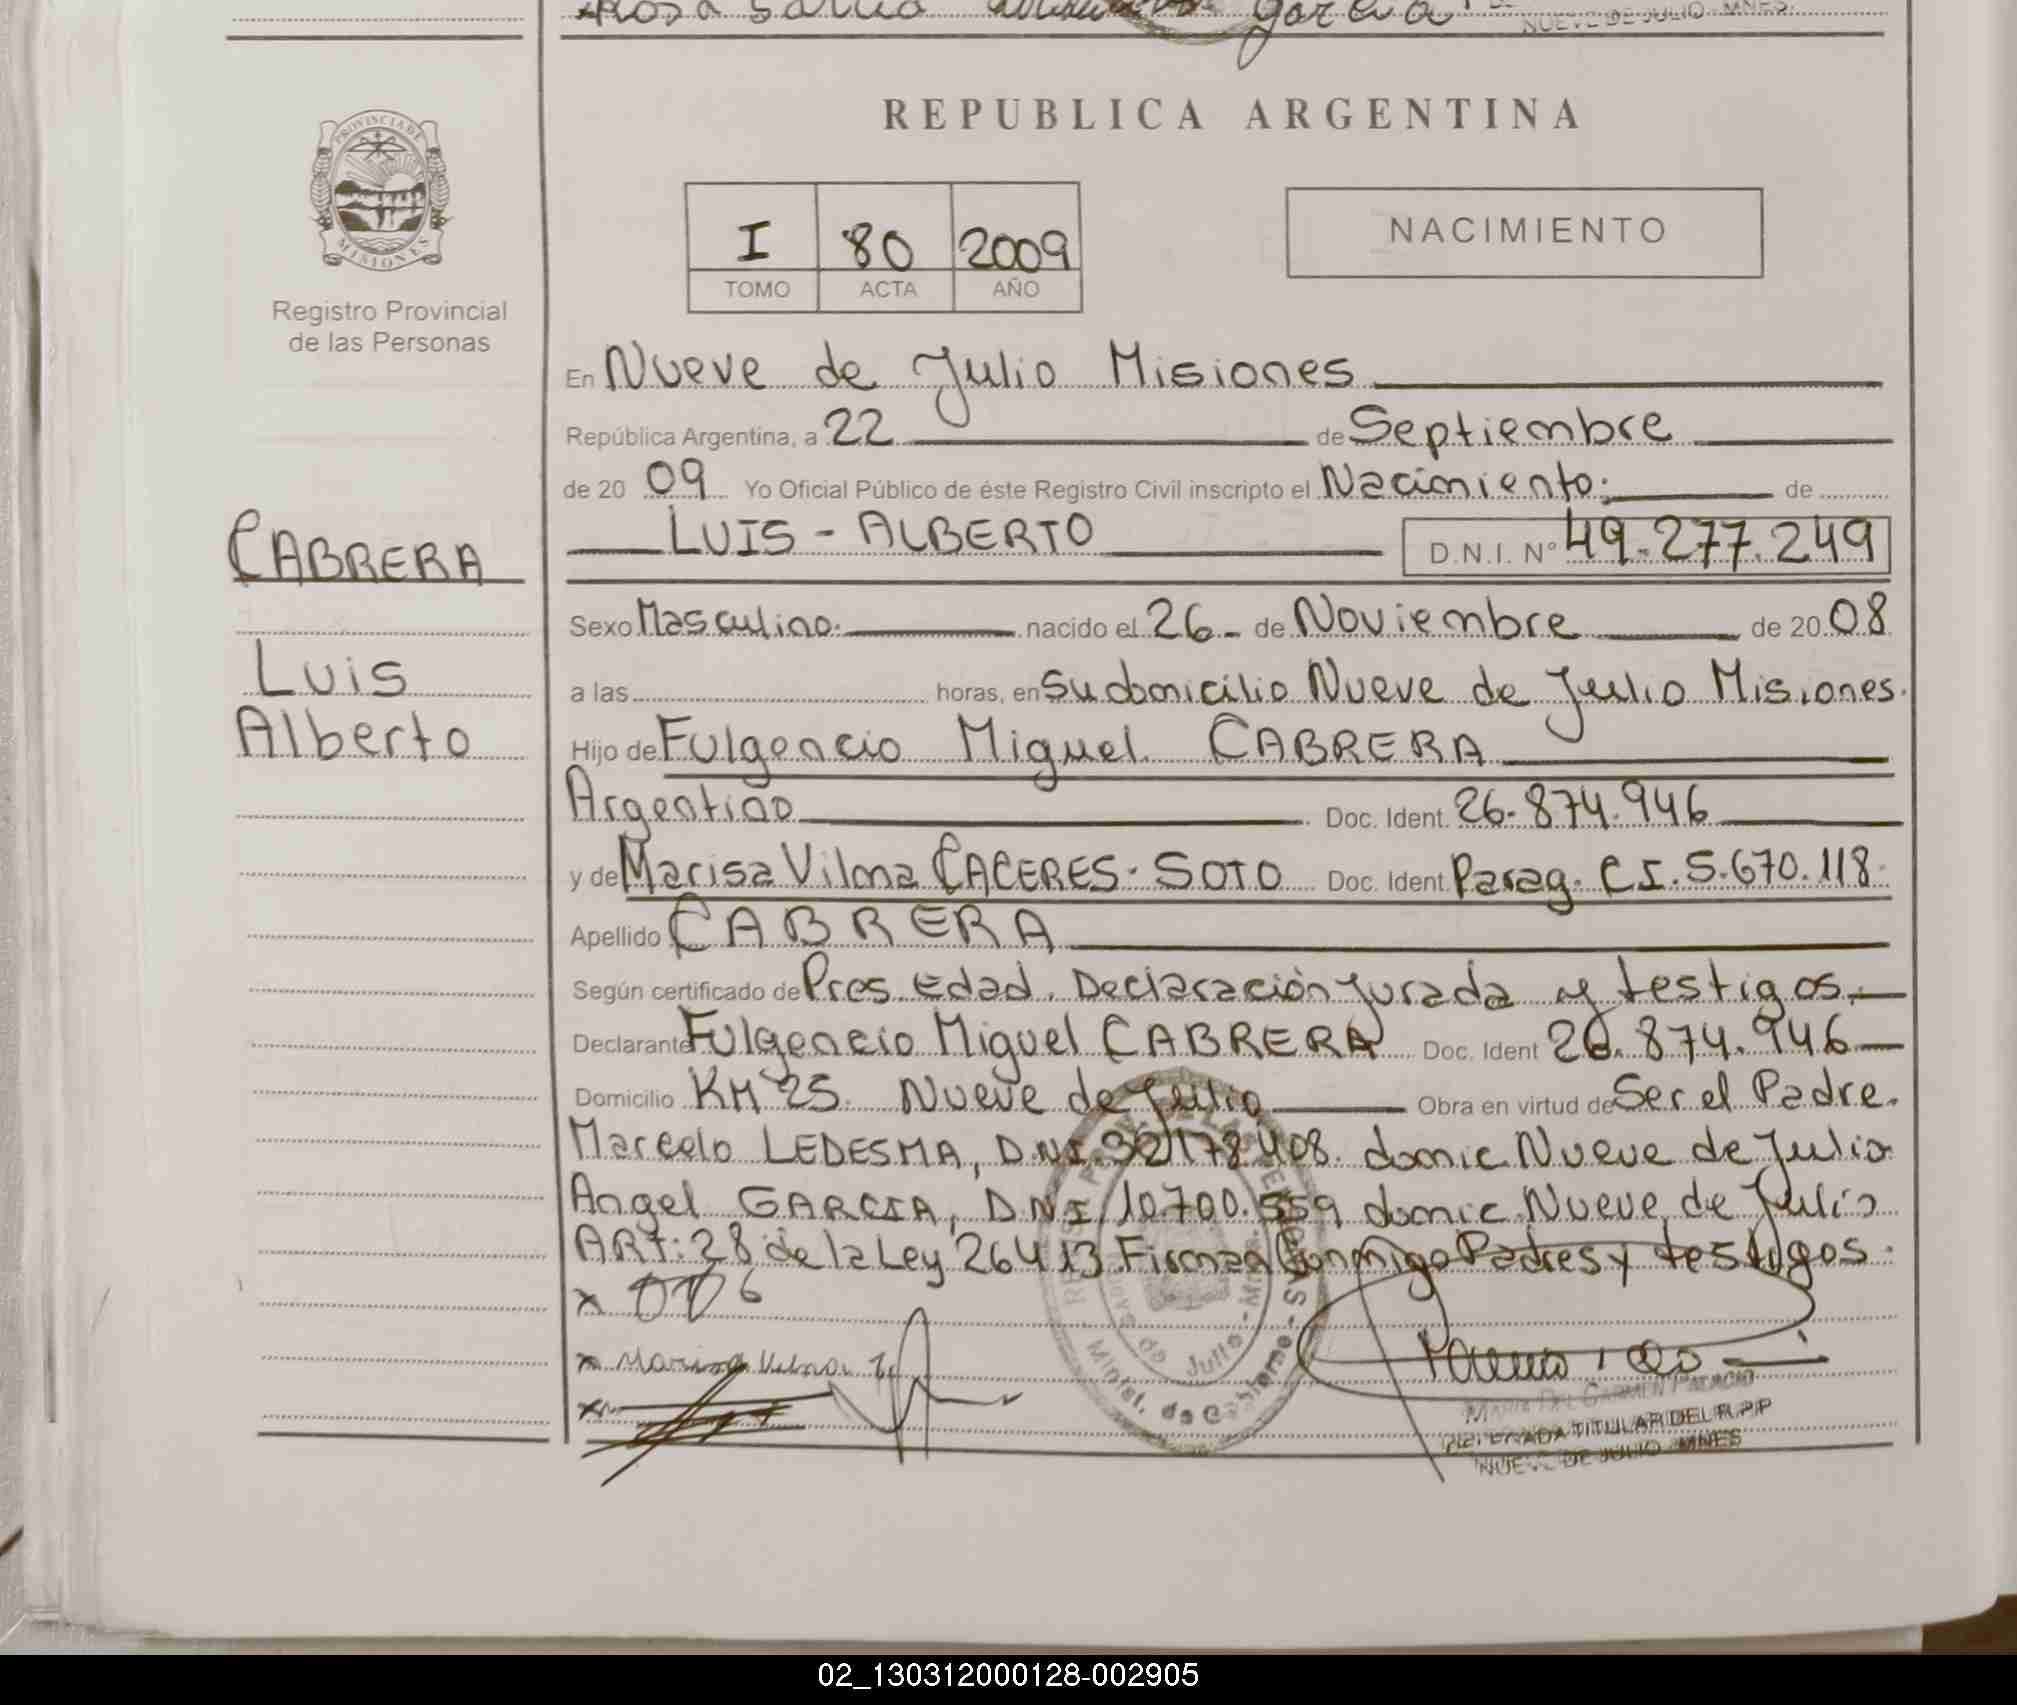 Rosa
NUEVE DE JULIO - MNES.
PROVINCIA DE
MISIONES
Registro Provincial
de las Personas
REPUBLICA ARGENTINA
I 80 2009
TOMO ACTA AÑO
NACIMIENTO
En Nueve de Julio Misiones
República Argentina, a 22 de Septiembre
de 20 09 Yo Oficial Público de éste Registro Civil inscripto el Nacimiento. de
LUIS - ALBERTO D.N.I. Nº 49.277.249
CABRERA
Luis
Alberto
Sexo Masculino. nacido el 26 - de Noviembre de 20 08
a las horas, en su domicilio Nueve de Julio Misiones.
Hijo de Fulgencio Miguel CABRERA
Argentino Doc. Ident. 26.874.946
y de Marisa Vilma CACERES - SOTO Doc. Ident. Parag. C.I. 5.670.118.
Apellido CABRERA
Según certificado de Pres. Edad. Declaración Jurada y testigos.
Declarante Fulgencio Miguel CABRERA Doc. Ident 26.874.946
Domicilio KM 25. Nueve de Julio Obra en virtud de Ser el Padre.
Marcelo LEDESMA, D.N.I. 32.178.408. domic. Nueve de Julio
Angel GARCIA, D.N.I. 10.700.559 domic. Nueve de Julio
ART: 28 de la Ley 26413. Firman Conmigo Padres y testigos.
x
x Marisa Vilma
x
MARIA DEL CARMEN PALACIO
DELEGADA TITULAR DEL R.P.P
NUEVE DE JULIO - MNES
Nueve de Julio - Mnes.
Minist. de Gobierno
02_130312000128-002905